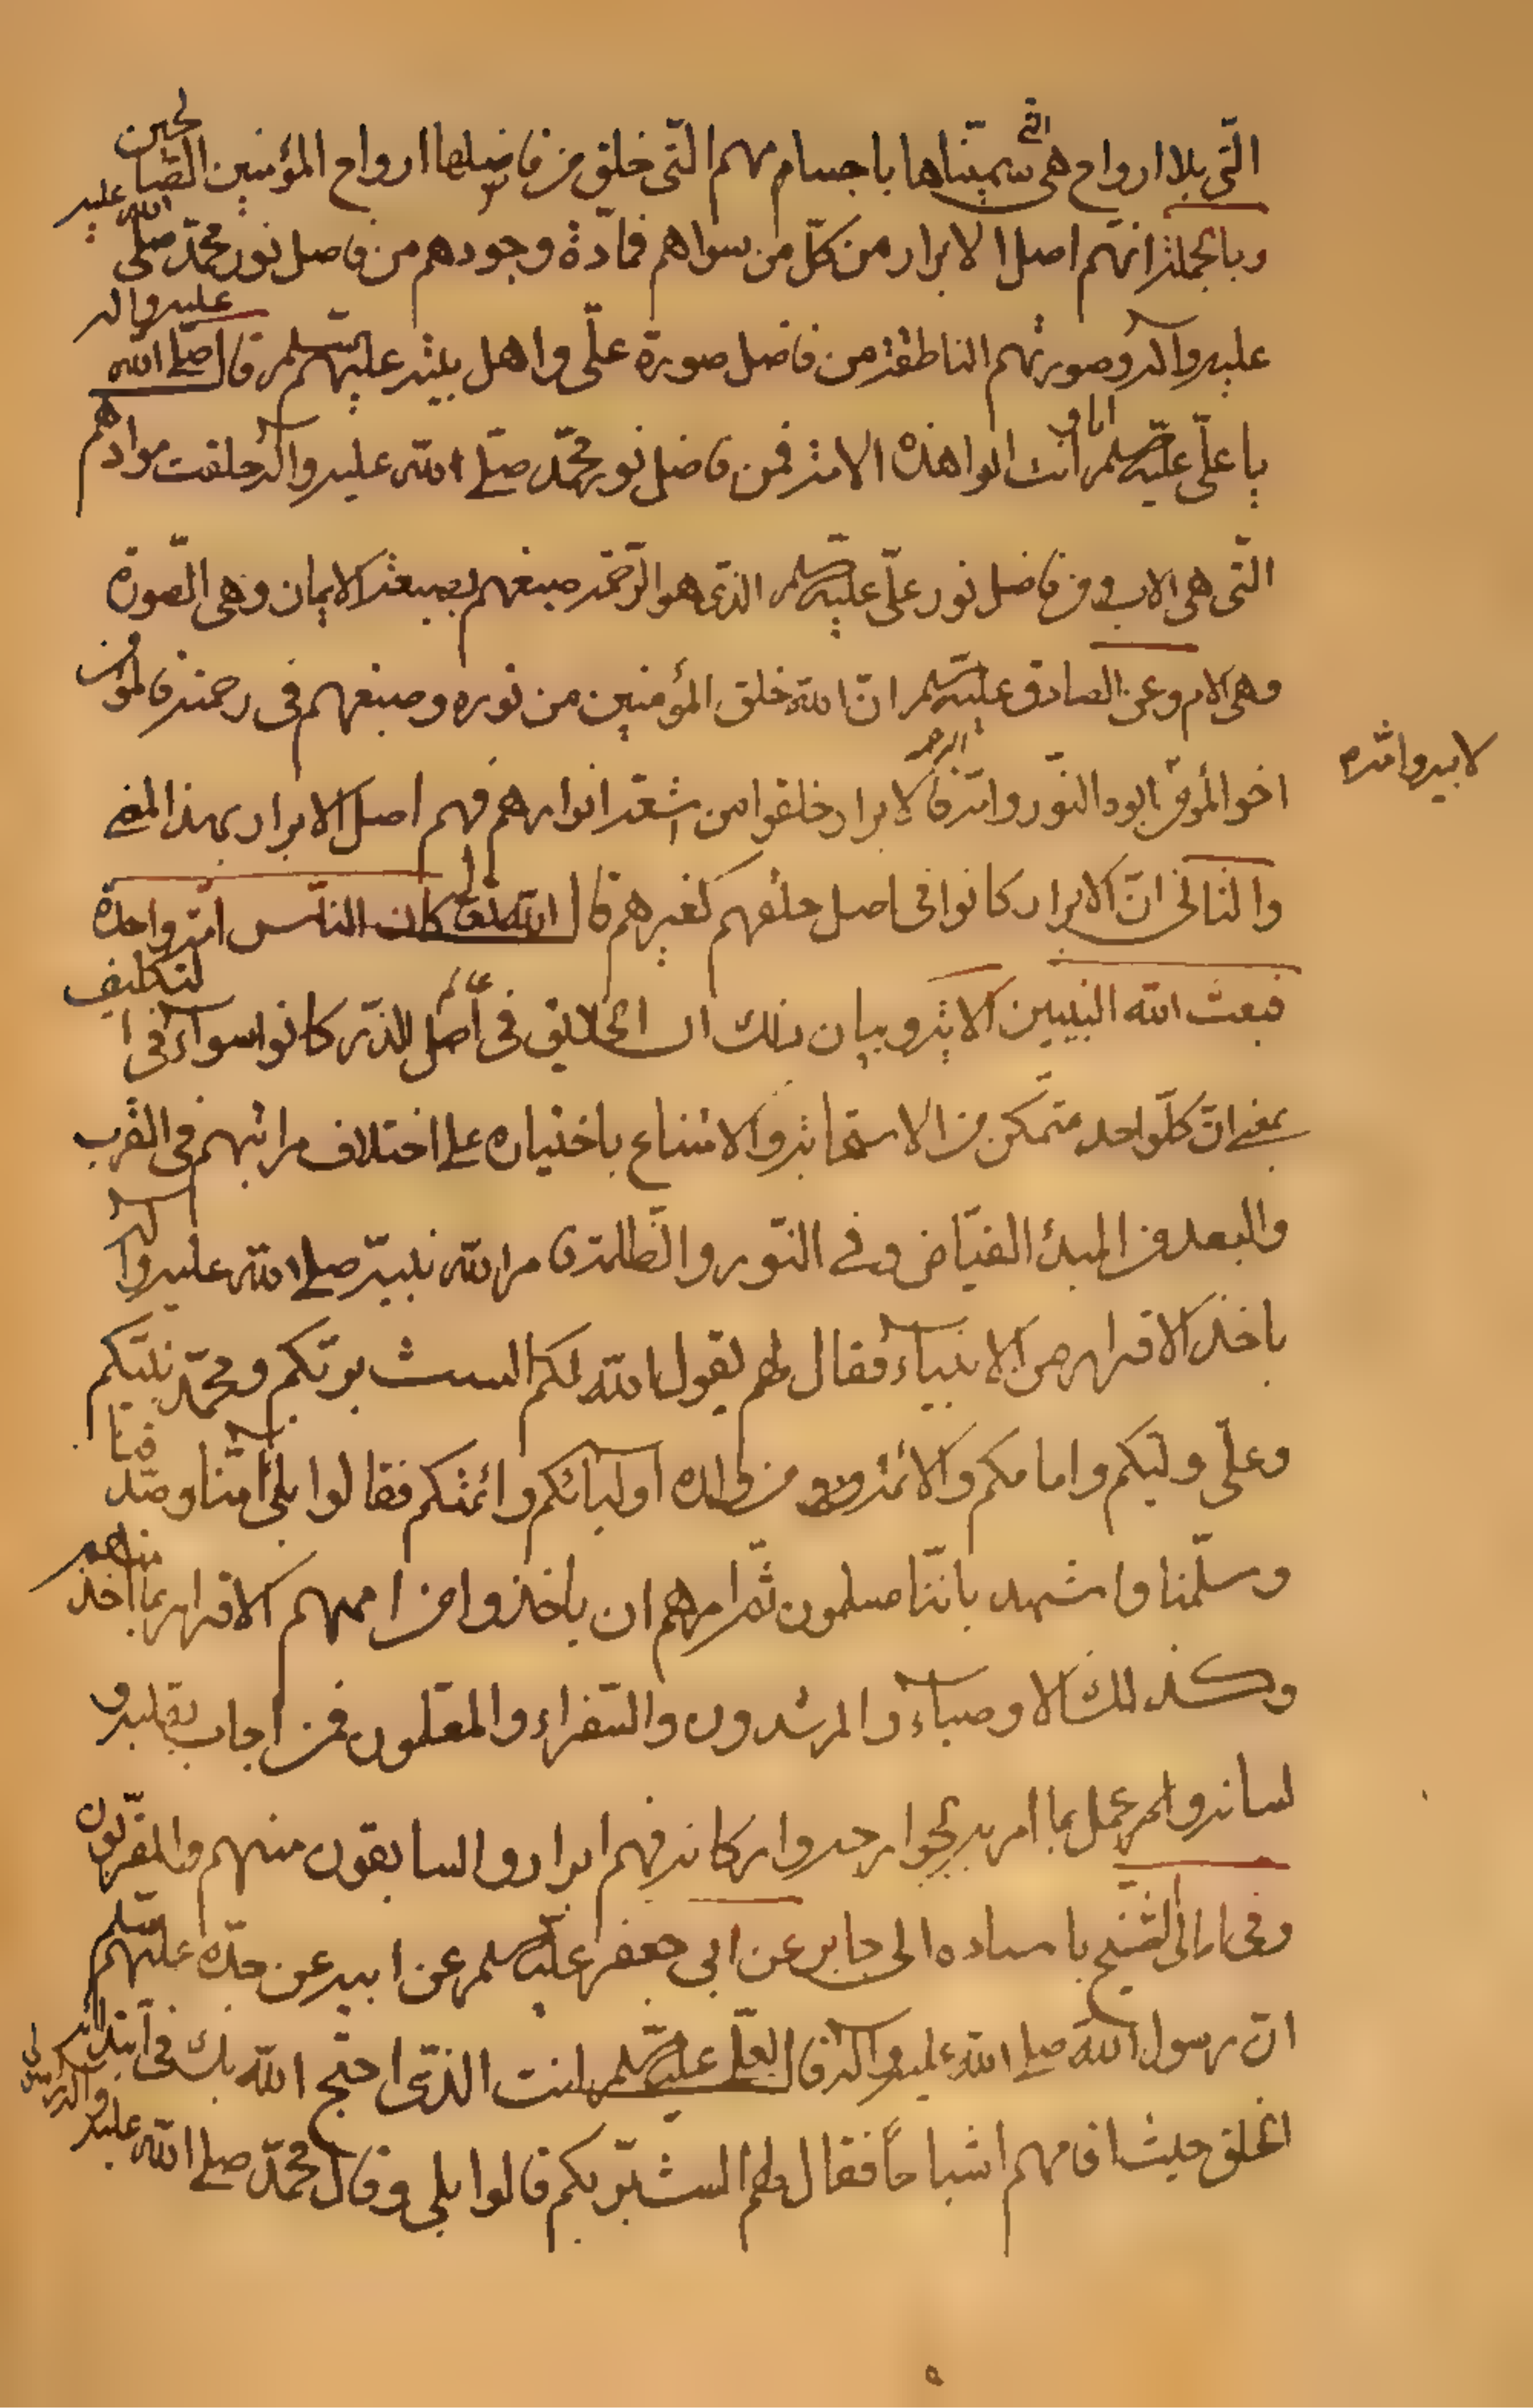 التّى بلا ارواح هى التى سمّيناها باجسامهم التّى خلق من فاضلها ارواح المؤمنين الصّالحين
وبالجملة انّهم اصل الابرار من كلّ من سواهم فمادّة وجودهم من فاضل نور محمّد صلى الله عليه
عليه وآله وصورتهم الناطقة من فاضل صورة علّى واهل بيته عليهم السلم قال صلى الله عليه واله
يا علّى عليه السلم انا وانت ابوا هذه الامة فمن فاضل نور محمّد صلى الله عليه وآله خلقت موادهم
التّى هى الاب ومن فاضل نور علّى عليه السلم الذى هو الرّحمة صبغهم بصبغة الايمان وهى الصّورة
وهى الام وعن الصادق عليه السلم انّ الله خلق المؤمنين من نوره وصبغهم فى رحمته فالمؤمن
اخو المؤمن لابيه وامّه ابوه النّور وامّه الرحمة فالابرار خلقوا من اشعّة انوارهم فهم اصل الابرار بهذا المعنى
والثانى انّ الابرار كانوا فى اصل خلقهم كغيرهم قال الله تعالى كان الناس امّة واحدة
فبعث الله النبيين الاية وبيان ذلك ان الخلايق فى اصل عالم الذّر كانوا سوآء فى التكليف
بمعنى انّ كلّ واحد متمكن من الاستجابة والامتناع باختياره على اختلاف مراتبهم فى القرب
والبعد من المبدء الفيّاض وفى النّور والظّلمة فامر الله نبيّه صلى الله عليه وآله
باخذ الاقرار من الانبياء فقال لهم يقول الله لكم الست بربّكم ومحمّد نبيّكم
وعلّى وليّكم وامامكم والائمّة من ولده اوليائكم وائمّتكم فقالوا بلى آمنّا وصدّقنا
وسلّمنا واشهد بانّنا مسلمون ثمّ امرهم ان ياخذوا من اممهم الاقرار بما اخذ منهم
وكذلك الاوصياء والمرشدون والسّفراء والمعلّمون فمن اجاب بقلبه و
لسانه وعمل بما امر به بجوارحه واركانه فهم ابرار والسابقون منهم والمقرّبون
وفى امالى الشّيخ باسناده الى جابر عن ابى جعفر عليه السلم عن ابيه عن جدّه عليهم السلم
انّ رسول الله صلى الله عليه وآله قال لعلّى عليه السلم انت الذّى احتّج الله بك فى ابتدائه
الخلق حيث اقامهم اشباحاً فقال لهم الست بربّكم قالوا بلى وقال محمّد صلى الله عليه وآله